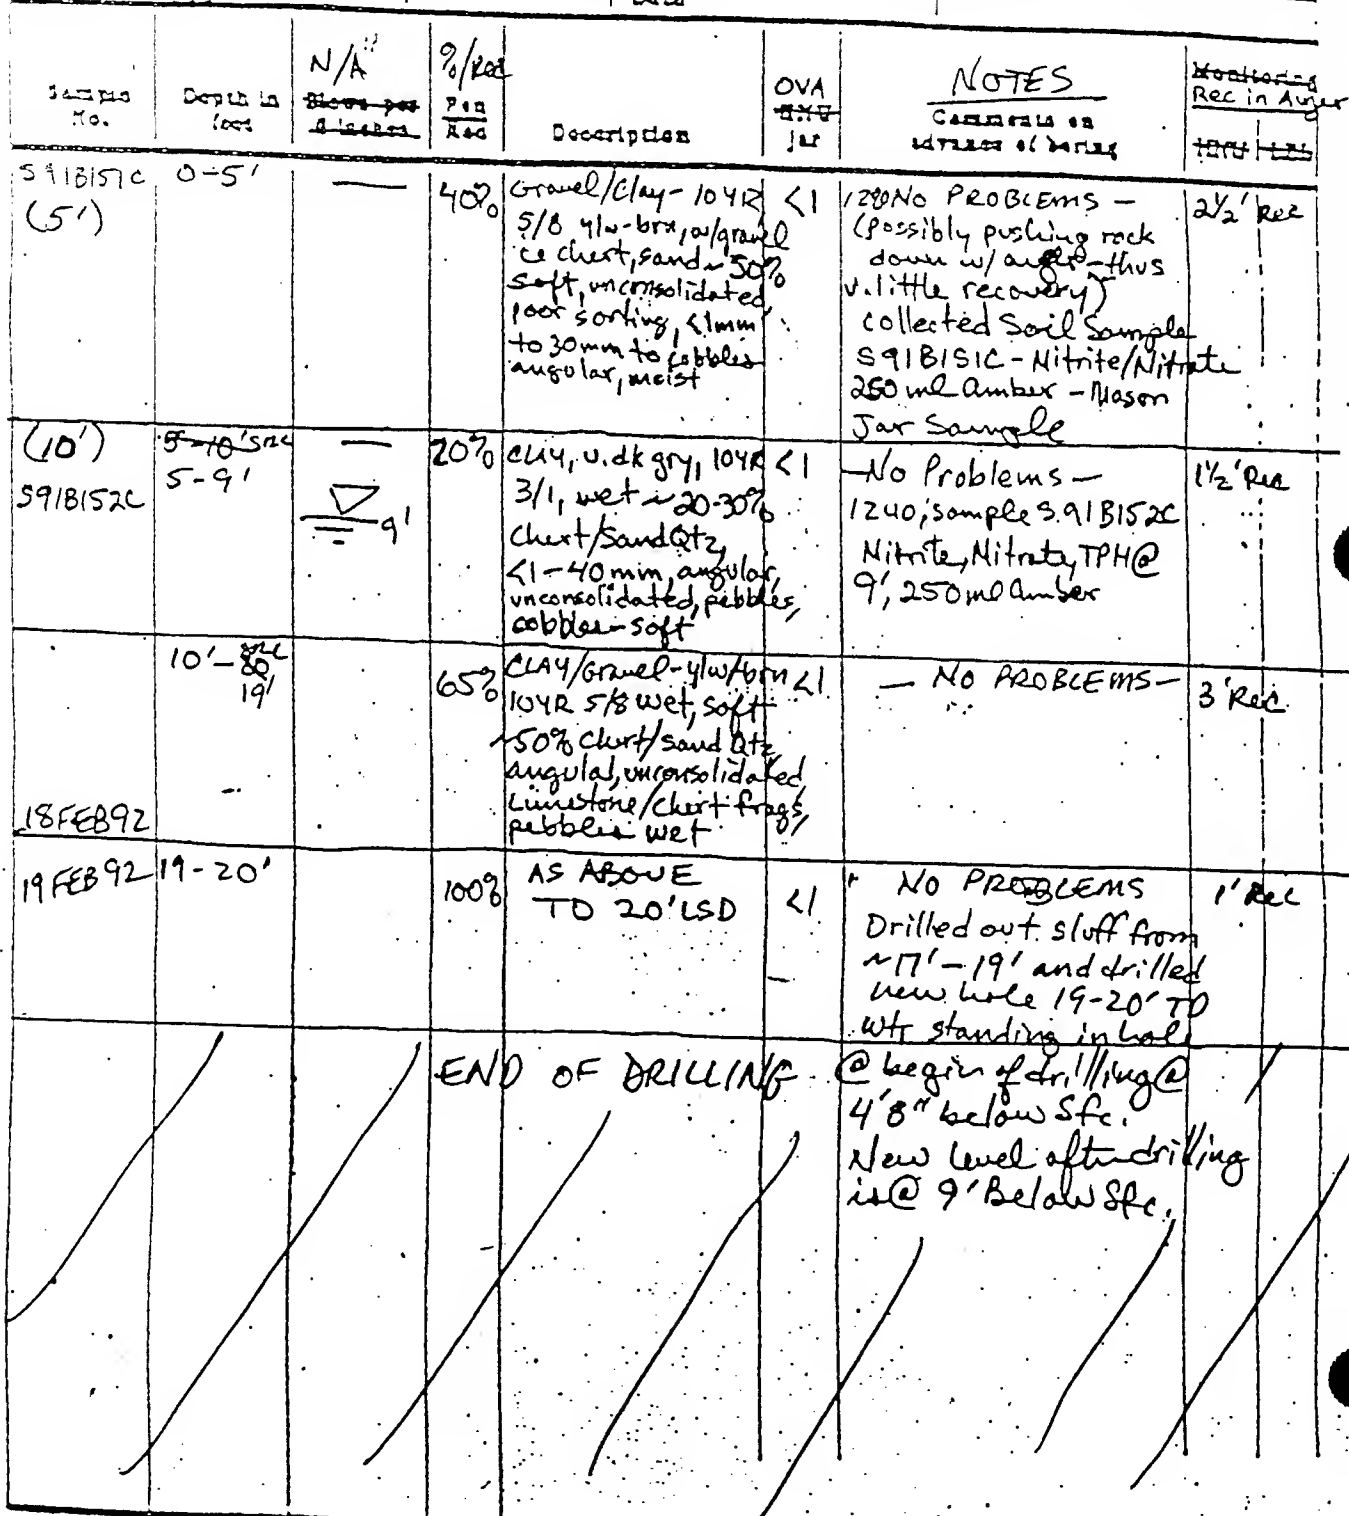 N/A
%/Rec
Sample No.
Depth in feet
Blows per 6 inches
Pen Rec
Description
OVA
HNU
jar
NOTES
Comments on advance of boring
Monitoring
Rec in Auger
HNU LEL
S91B151C 0-5' — 40%
(5')
Gravel/Clay - 10YR
5/8 ylw-brn, w/gravel
ce chert, sand ~ 50%
soft, unconsolidated,
poor sorting, <1mm
to 30mm to cobbles
angular, moist
<1
NO PROBLEMS -
(possibly pushing rock
down w/ auger - thus
v. little recovery)
collected Soil Sample
S91B151C - Nitrite/Nitrate
250 ml Amber - Mason
Jar Sample
2½' Rec
(10') 5-10' SRC — 20%
S91B152C 5-9'
9'
CLAY, v. dk gry, 10YR
3/1, wet ~ 20-30%
Chert/Sand Qtz,
<1-40mm, angular,
unconsolidated, pebbles,
cobbles - soft
<1
- No Problems -
1240, sample S91B152C
Nitrite, Nitrate, TPH @
9', 250 ml Amber
1½' Rec
10'-
19'
65%
CLAY/Gravel - ylw/brn
10YR 5/8 wet, soft
~50% Chert/sand Qtz
angular, unconsolidated
Limestone/Chert frags,
pebbles wet
<1
- NO PROBLEMS -
3' Rec
18FEB92
19FEB92 19-20' 100%
AS ABOVE
TO 20' LSD
<1
NO PROBLEMS
Drilled out sluff from
~17'-19' and drilled
new hole 19-20' TD
Wtr standing in hole
@ begin of drilling @
4'8" below Sfc.
New level after drilling
is @ 9' Below Sfc.
1' Rec
END OF DRILLING